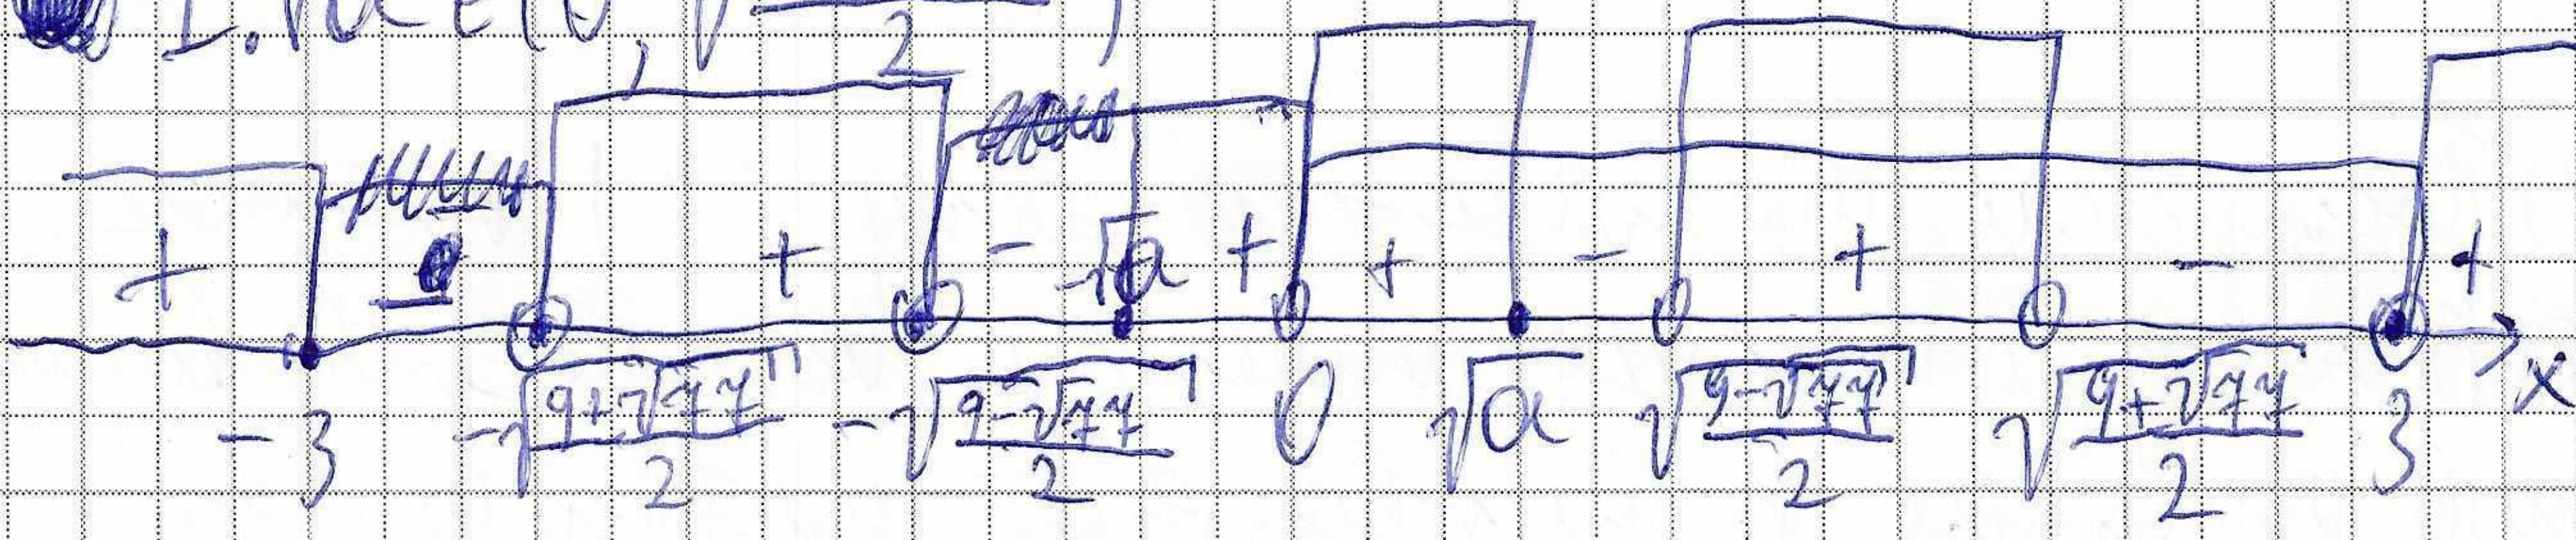 1. √a ∈ (0, √ 2 )
+ - + - -√a + + - + - +
-3 -√((9+√77)/2) -√((9-√77)/2) 0 √a √((9-√77)/2) √((9+√77)/2) 3 x